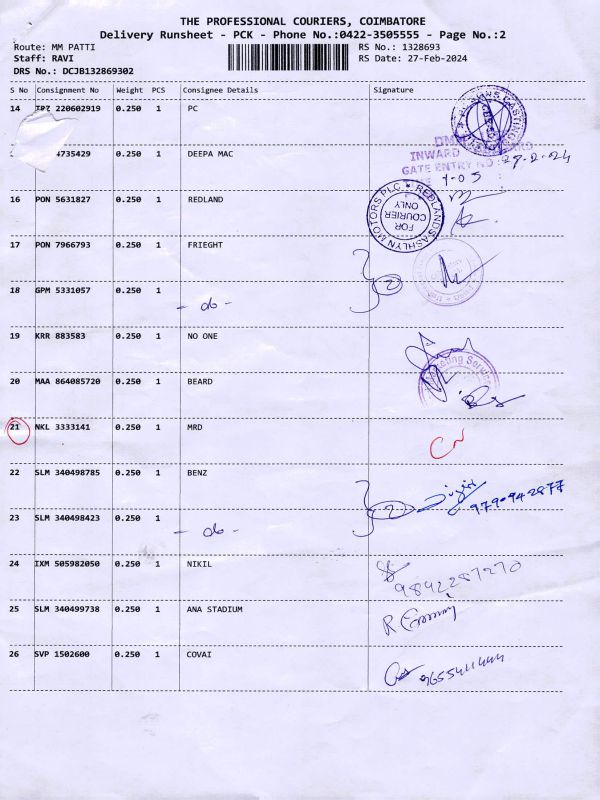 THE PROFESSIONAL COURIERS, COIMBATORE
Delivery Runsheet - PCK - Phone No.:0422-3505555 - Page No.:2
Route: MM PATTI RS No.: 1328693
Staff: RAVI RS Date: 27-Feb-2024
DRS No.: DCJB132869302
S No Consignment No Weight PCS Consignee Details Signature
14 220602919 0.250 1 PC
4735429 0.250 1 DEEPA MAC
INWARD
GATE ENTRY NO
16 PON 5631827 0.250 1 REDLAND
REDLANDS ASHLYN MOTORS PLC
FOR COURIER ONLY
17 PON 7966793 0.250 1 FRIEGHT
2
18 GPM 5331057 0.250 1 - do -
19 KRR 883583 0.250 1 NO ONE
20 MAA 864085720 0.250 1 BEARD
21 NKL 3333141 0.250 1 MRD
22 SLM 340498785 0.250 1 BENZ
2 9790942877
23 SLM 340498423 0.250 1 - do -
24 IXM 505982050 0.250 1 NIKIL
9842287270
25 SLM 340499738 0.250 1 ANA STADIUM
26 SVP 1502600 0.250 1 COVAI